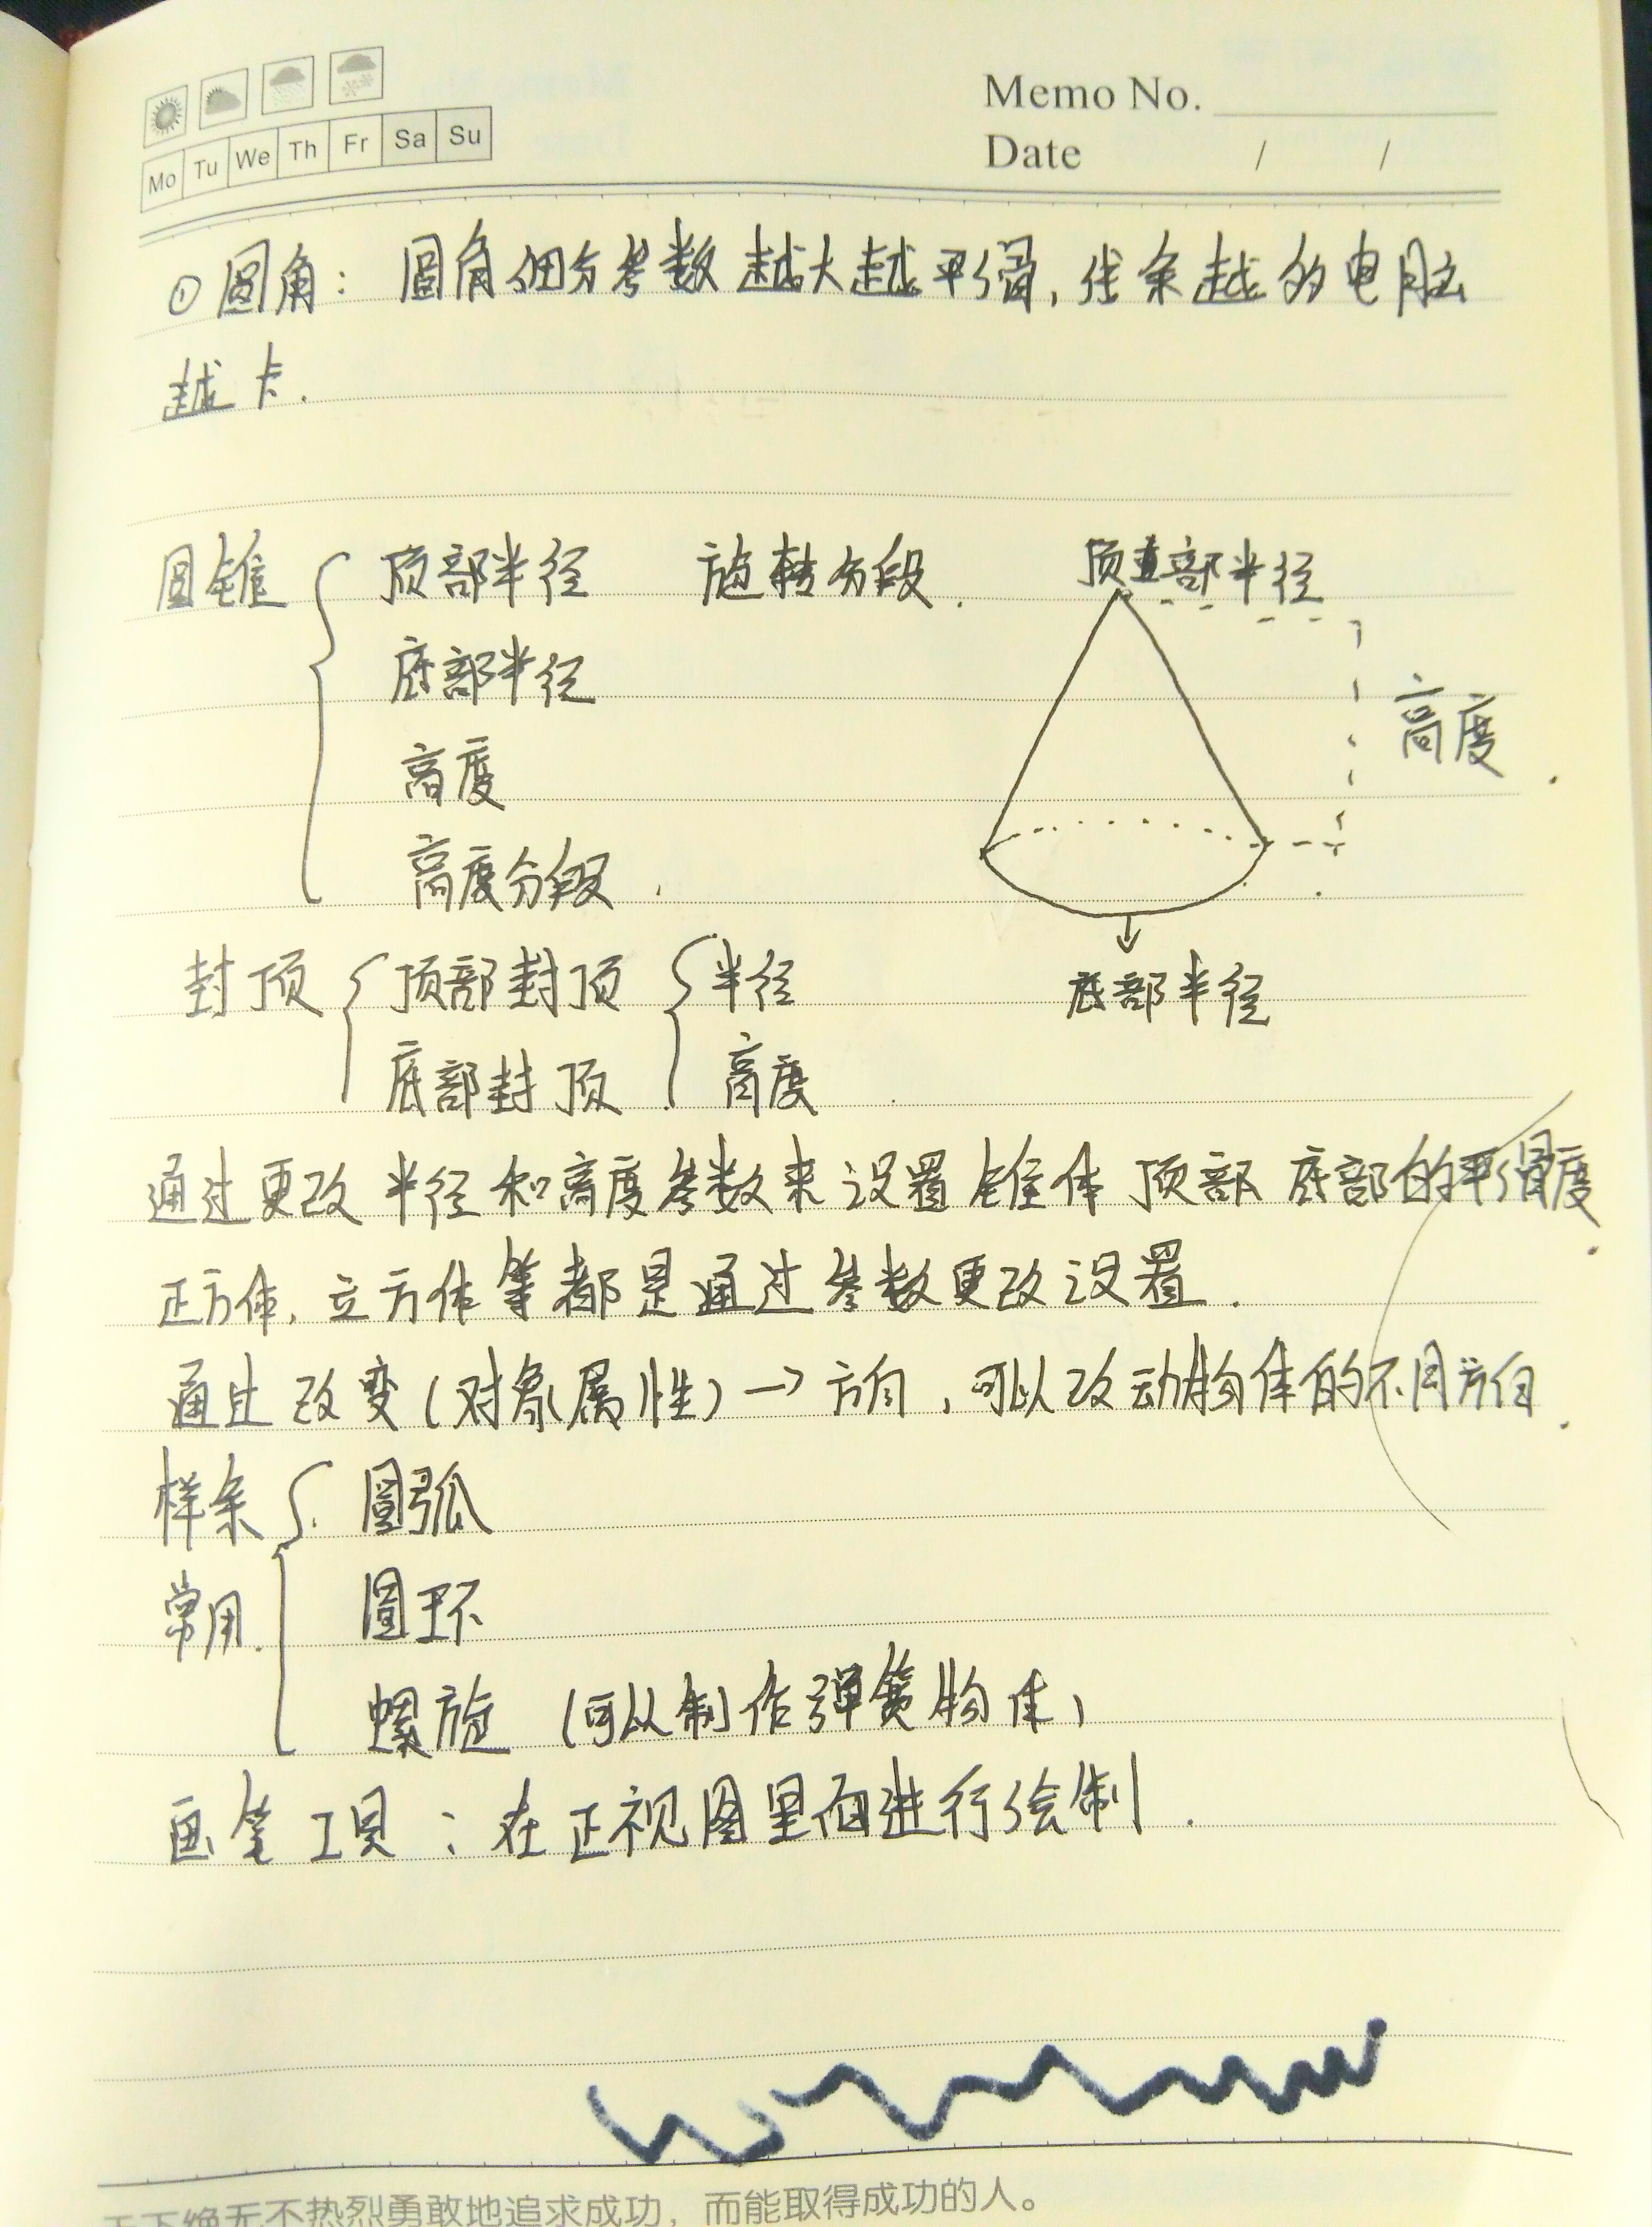 Memo No.
Mo Tu We Th Fr Sa Su
Date / /
①圆角：圆角细分参数越大越平滑，线条越多电脑
越卡.
圆锥 顶部半径 旋转分段. 顶部半径
底部半径
高度
高度
高度分段.
封顶 顶部封顶 半径
底部半径
底部封顶 高度
通过更改半径和高度参数来设置锥体顶部底部的平滑度.
正方体，立方体等都是通过参数更改设置.
通过改变(对象属性)→方向，可以改动物体的不同方向.
样条 圆弧
常用. 圆环
螺旋 (可以制作弹簧物体)
画笔工具：在正视图里面进行绘制.
天下绝无不热烈勇敢地追求成功，而能取得成功的人。